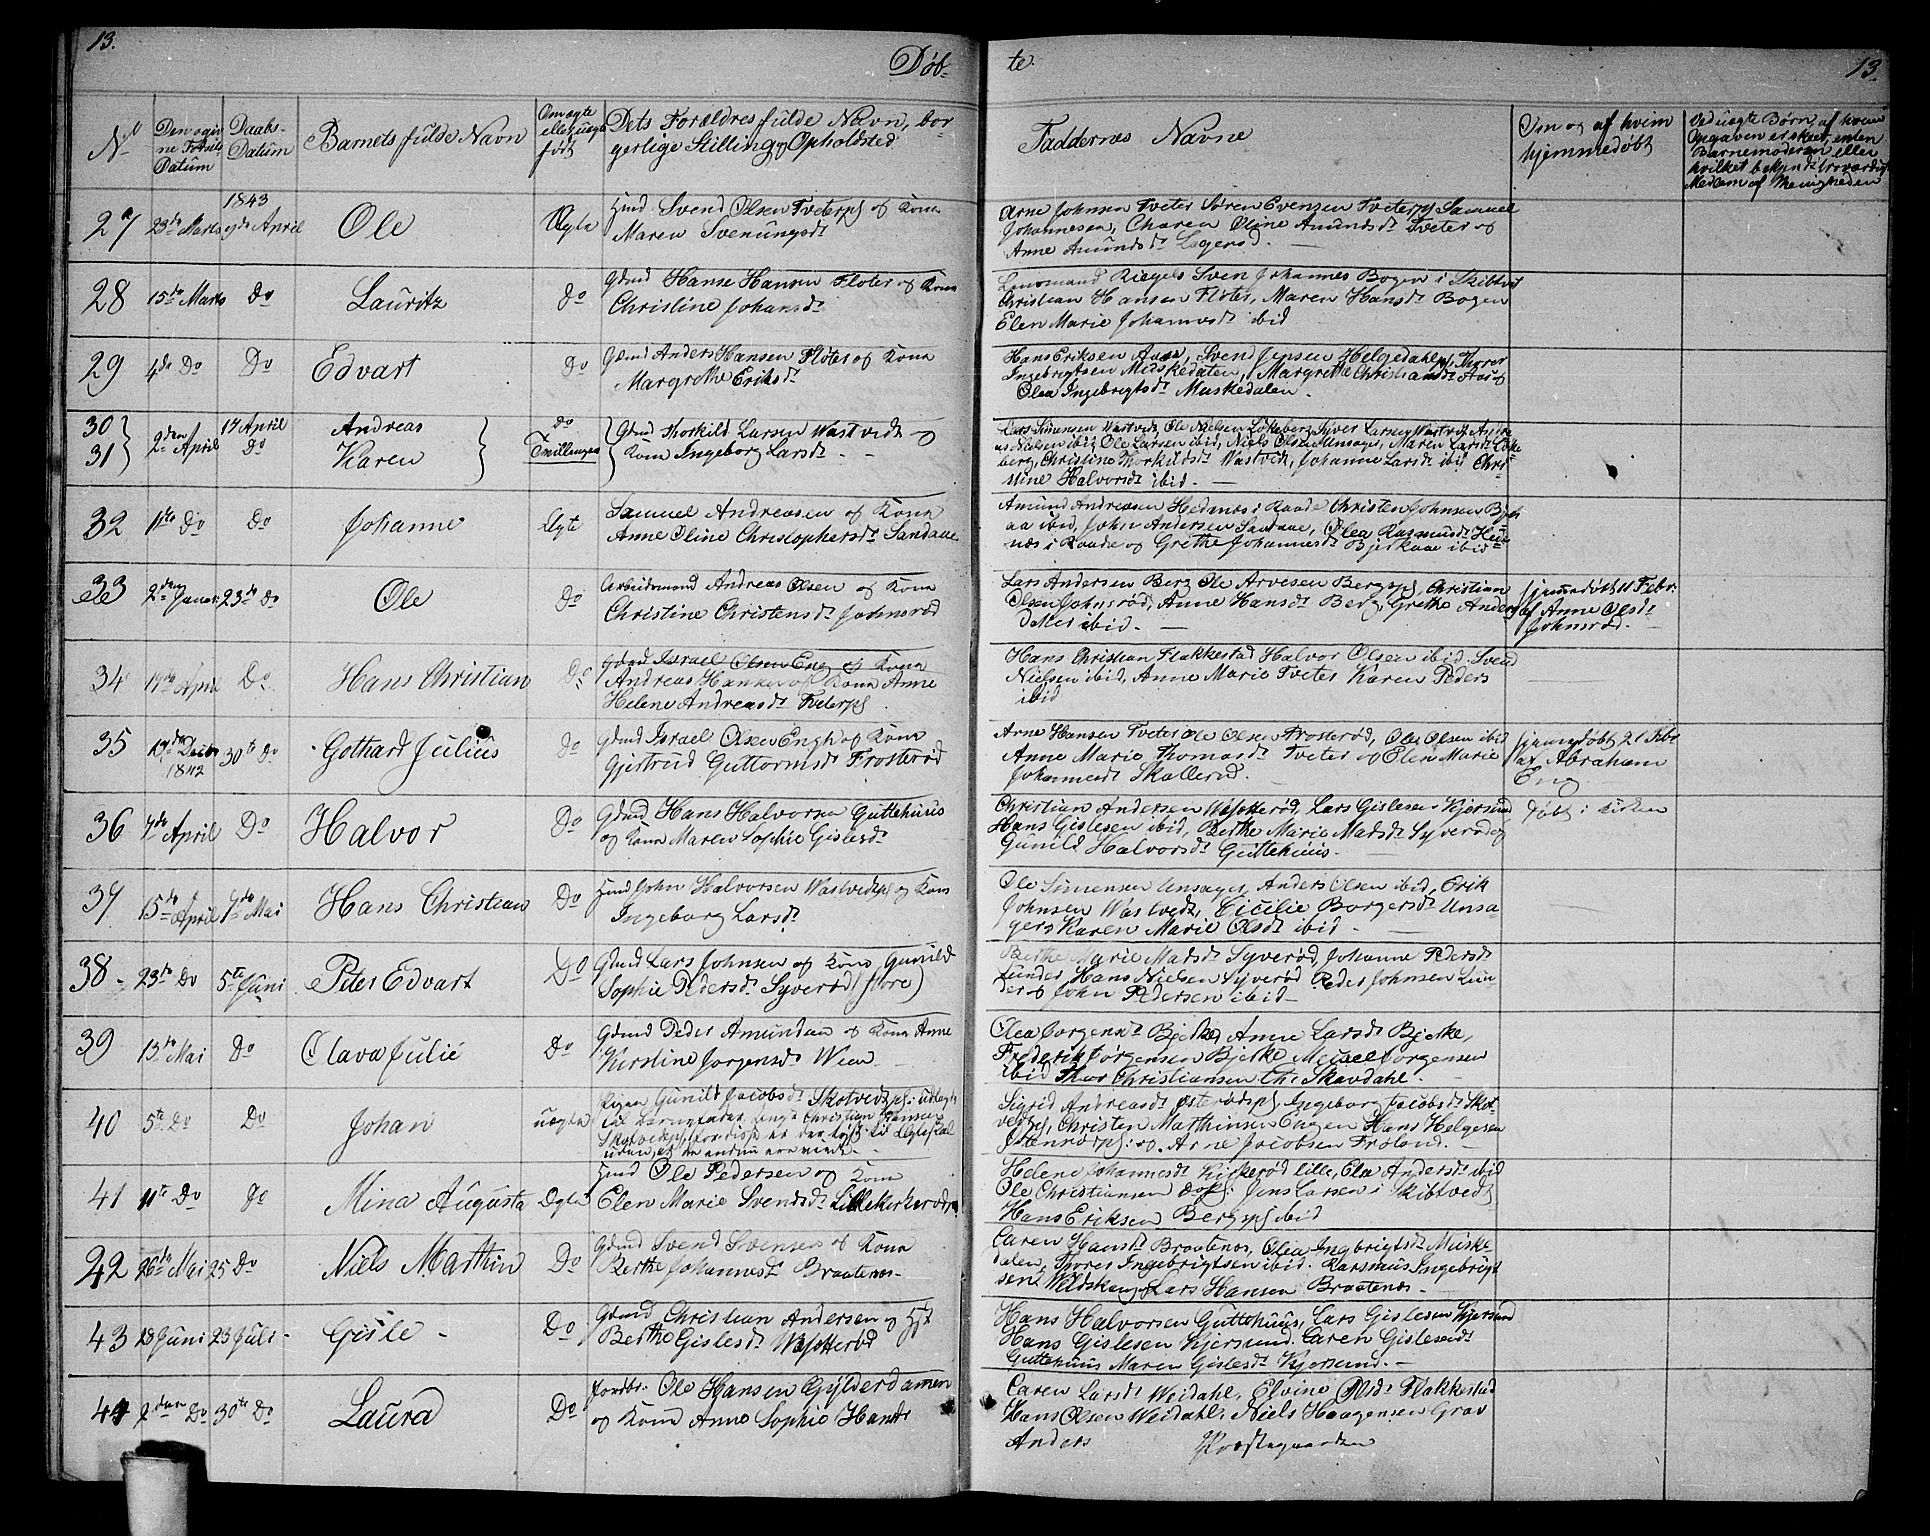 13.
Døb-
te.
13.
No
Den ogiv-
ne Føds-
Datum
Daabs-
Datum
Barnets fulde Navn
Om ægte
eller uægte
født
Dets Forældres fulde Navn, bor-
gerlige Stilling og Opholdsted
Faddernes Navne
Om og af hvem
hjemmedøbt
Ved uægte Børn af hvem
Opgaven er skeet, enten
Barnemoderen eller
hvilket bekjendt troværdigt
Medlem af Menigheden
27
23de Marts
1843
9de April
Ole
Ægte
Hmd Svend Olsen Tveterpl of Kona
Maren Svenungsdt
Arne Johnsen Tveter Søren Evensen Tveterpl Samuel
Johannesen, Charen Oline Amundsdt Tveter og
Anne Amundsdt Løgerød.
28
15de Marts
Do
Lauritz
Do
Gdmd Hans Hansen Fløter of Kona
Christine Johansdt
Lensmand Riegels Sven Johannes Bogen i Skibtvet
Christian Hansen Fløter, Maren Hansdt Bogen
Elen Marie Johannesdt ibid
29
4de Do
Do
Edvart
Do
Gdmd Anders Hansen Fløter of Kona
Margrethe Eriksdt
Hans Eriksen Aase, Svend Jensen Helgedahlspl, Thorer
Ingebrigtsen Midskedalen, Margrethe Christiansdt Aas og
Olea Ingebrigtsdt Muskedalen.
30
31
2den April
17 April
Do
Andreas
Karen
Do
Tvillinger
Gdmd Thorkild Larsen Wastvedt og
Kona Ingeborg Larsdt
Lars Simensen Wastvedt, Ole Nielsen Løkeberg, Syver Larsen Wastvedt Andre-
as Nielsen ibid, Ole Larsen ibid, Niels Olsen Unsager, Maren Larsdt Løke-
berg, Christine Thorkildsdt Wastvedt, Johanne Larsdt ibid Chri-
stine Halvorsdt ibid.
32
1ste Do
Do
Johanne
Ægte
Samuel Andreasen of Kona
Anne Oline Christophersdt Sandaae
Amund Andreasen Hednæs i Raade Christen Johnsen Bjerk-
aa ibid, John Andersen Sandaae, Olea Rasmusdt Hed-
næs i Raade og Grethe Johannesdt Bjerkaae ibid
33
2den Januar
23de Do
Ole
Do
Arbeidsmand Andreas Olsen of Kona
Christine Christensdt Johnsrød
Lars Andersen Berg Ole Arvesen Bergspl, Christian
Olsen Johnsrød, Anne Hansdt Berg, Grethe Anders
datter ibid.
Hjemmedøbt 11 Febr.
af Anne Olsdt
Johnsrød.
34
17de April
Do
Hans Christian
Do
Gdmd Israel Olsen Eng of Kona
Andreas Hansen of Kona Anne
Helene Andreasdt Tveterpl
Hans Christian Flakkestad Halvor Olsen ibid Svend
Nielsen ibid, Anne Marie Tveter Karen Peders
ibid
35
19de Decbr
1842
30te Do
Gothard Julius
Do
Gdmd Israel Olsen Engh of Kona
Gjertrud Guttormsdt Frosterød
Arne Hansen Tveter Ole Olsen Frosterød, Ole Olsen ibid
Anne Marie Thomasdt Tveter og Elen Marie
Johannesdt Skallerud.
Hjemmedøbt 21 Febr
af Abraham
Eng
36
7de April
Do
Halvor
Do
Gdmd Hans Halvorsen Guttehuus
og Kona Maren Sophie Gislesdt
Christian Andersen Westterød, Lars Gislesen Kjersund
Hans Gislesen ibid, Berthe Marie Madsdt Syverød og
Gunild Halvorsdt Guttehuus.
Døbt i Kirken
37
15de April
7de Mai
Hans Christian
Do
Hmd John Halvorsen Wastvedtpl og Kona
Ingeborg Larsdt
Ole Simensen Unsager, Anders Olsen ibid, Erik
Johnsen Wastvedt, Cicilie Borgersdt Unsa-
ger Karen Marie Olsdt ibid.
38
23de Do
5te Juni
Peter Edvart
Do
Gdmd Lars Johnsen og Kona Gunild
Sophie Pedersdt Syverød (store)
Berthe Marie Madsdt Syverød, Johanne Pedersdt
Lunder, Hans Nielsen Syverød Peder Johnsen Lun-
der og John Pedersen ibid
39
13de Mai
Do
Olava Julie
Do
Gdmd Peder Amundsen of Kona Anne
Kirstine Jørgensdt Wien
Olea Jørgensdt Bjerke, Anne Larsdt Bjerke,
Frederik Jørgensen Bjerke Michael Jørgensen
ibid Thor Christiansen Skavdahl.
40
5te Do
Do
Johan
uægte
Pigen Gunild Jacobsdt Skotvedtpl: udlagt
til Barnefader Ungk Christian Hansen
Skotvedtpl,
Sigrid Andreasdt Ingeborg Jacobsdt Skot-
vedtpl, Christen Matthinsen Engen Hans Helgesen
Stenrødpl: og Arne Jacobsen Froland.
41
11te Do
Do
Mina Augusta
Ægte
Hmd Ole Pedersen og Kona
Elen Marie Svendsdt Lillekirkerød
Helene Johannesdt Kirkerød lille, Elea Andersdt ibid
Ole Christiansen Jens Larsen i Skibtvedt
Hans Eriksen Bergspl ibid
42
26de Mai
25 Do
Niels Mathin
Do
Gdmd Svend Svensen of Kona
Berthe Johannesdt Braatenes
Caren Hansdt Braatenes, Olea Ingbrigtsdt Muske-
dalen, Thorer Ingebrigtsen ibid. Rasmus Ingebrigt
sen Lars Hansen Braatenes
43
28 Juni
23 Juli
Gisle
Do
Gdmd Christian Andersen og Hst
Berthe Gislesdt Westterød
Hans Halvorsen Guttehuus, Lars Gislesen Kjersund
Hans Gislesen Kjersund. Caren Gislesdt
Guttehuus Maren Gislesdt Kjersund.
44
2den Do
30te Do
Laura
Do
Jordbr. Ole Hansen Gylderdamen
og Kona Anne Sophie Hansdt
Caren Larsdt Weidahl, Elvine Olsdt Flakkestad
Hans Olsen Weidahl, Niels Haagensen Grav
Anders Præstegaarden